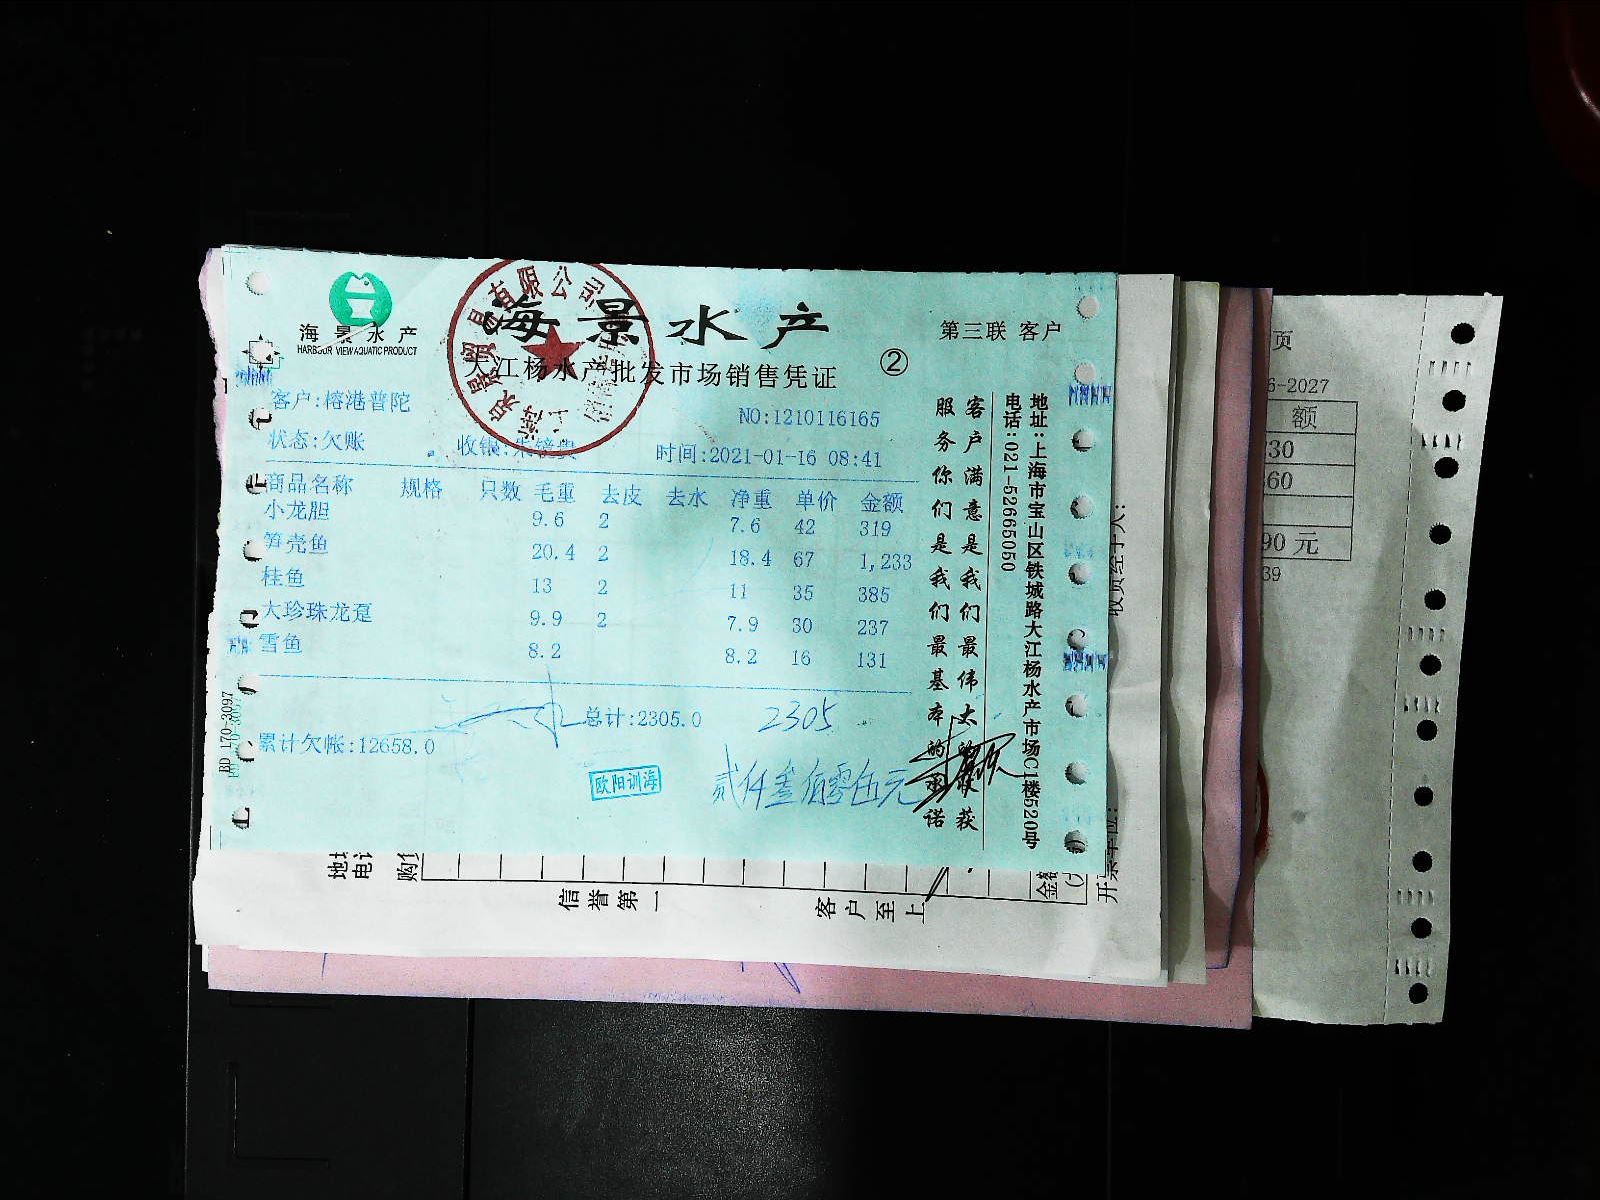 海景水产
HARBOUR VIEW AQUATIC PRODUCT
海景水产
第三联 客户
大江杨水产批发市场销售凭证
②
有限公司
客户:榕港普陀
NO:1210116165
状态:欠账
收银:
时间:2021-01-16 08:41
商品名称 规格 只数 毛重 去皮 去水 净重 单价 金额
小龙胆 9.6 2 7.6 42 319
笋壳鱼 20.4 2 18.4 67 1,233
桂鱼 13 2 11 35 385
大珍珠龙趸 9.9 2 7.9 30 237
雪鱼 8.2 8.2 16 131
总计:2305.0
2305
累计欠帐:12658.0
欧阳训海
贰仟叁佰零伍元
客户满意是我们最伟大的收获
服务你们是我们最基本的承诺
地址:上海市宝山区铁城路大江杨水产市场C1楼520号
电话:021-52665050
BD 170-3097
信誉第一
客户至上
页
6-2027
额
30
360
90 元
39